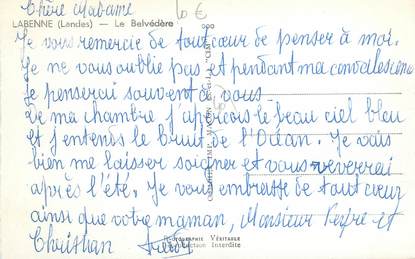 Chère Madame
6 €
LABENNE (Landes) — Le Belvédère
Je vous remercie de tout cœur de penser à moi.
Je ne vous oublie pas et pendant ma convalescence
je penserai souvent à vous
De ma chambre j'aperçois le beau ciel bleu
et j'entends le bruit de l'Océan. Je vais
bien me laisser soigner et vous reverrai
après l'été. Je vous embrasse de tout cœur
ainsi que votre maman, Monsieur et
Christian
PHOTOGRAPHIE VÉRITABLE
Reproduction Interdite